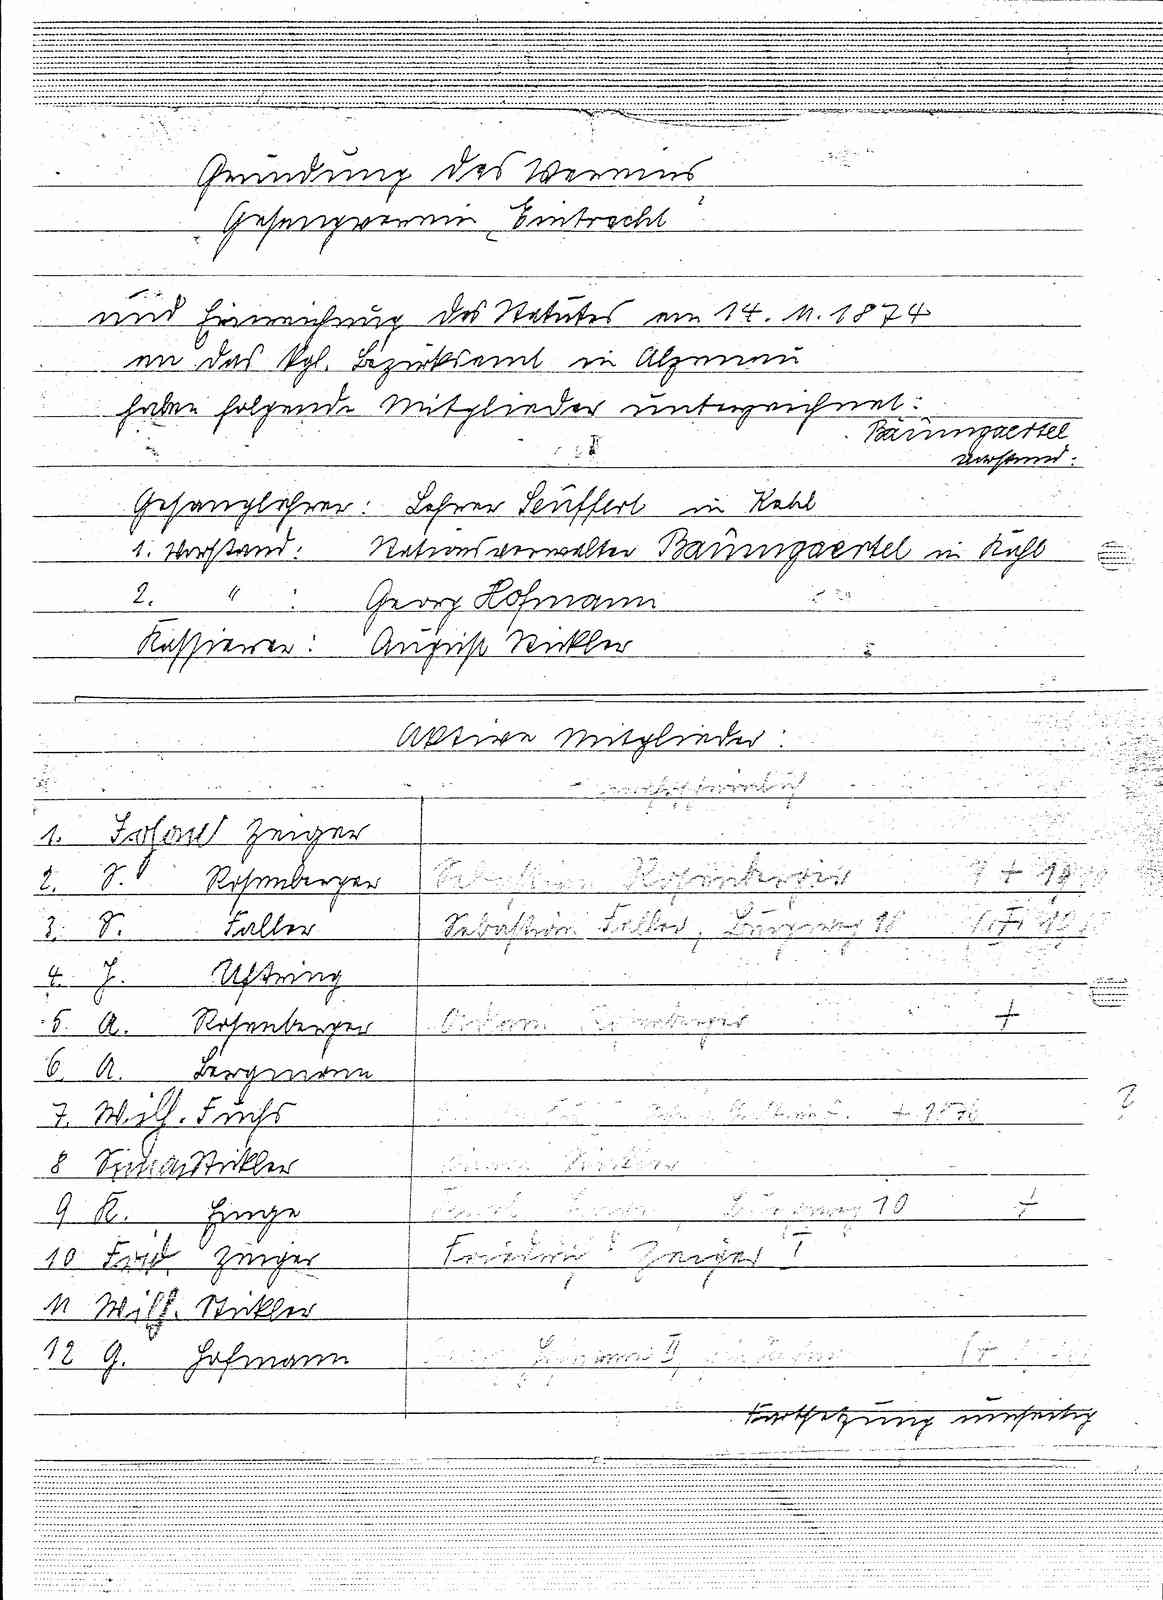 Gründung des Vereins
Gesangverein „Eintracht"
und Einreichung des Statutes am 14. 11. 1874
an das kgl. Bezirksamt in Alzenau
haben folgende Mitglieder unterzeichnet:
Bäumgaertel
Vorstand:
Gesanglehrer: Lehrer Seuffert in Kahl
1. Vorstand: Stationsverwalter Baumgaertel in Kahl
2. " : Georg Hofmann
Kassierer: August Stickler
Aktive Mitglieder:
1. Johann Zeiger
2. S. Rosenberger Sebastian Rosenberger
3. S. Faller Sebastian Faller, Burgweg 18
4. J. Uftring
5. A. Rosenberger Adam Rosenberger +
6. A. Bergmann
7. Wilh. Fuchs
8 Simon Stickler Simon Stickler
9 K. Huge Burgweg 10 +
10 Fried. Zeiger Friedrich Zeiger I
11 Wilh. Stickler
12 G. Hofmann Hofmann II
Fortsetzung umseitig